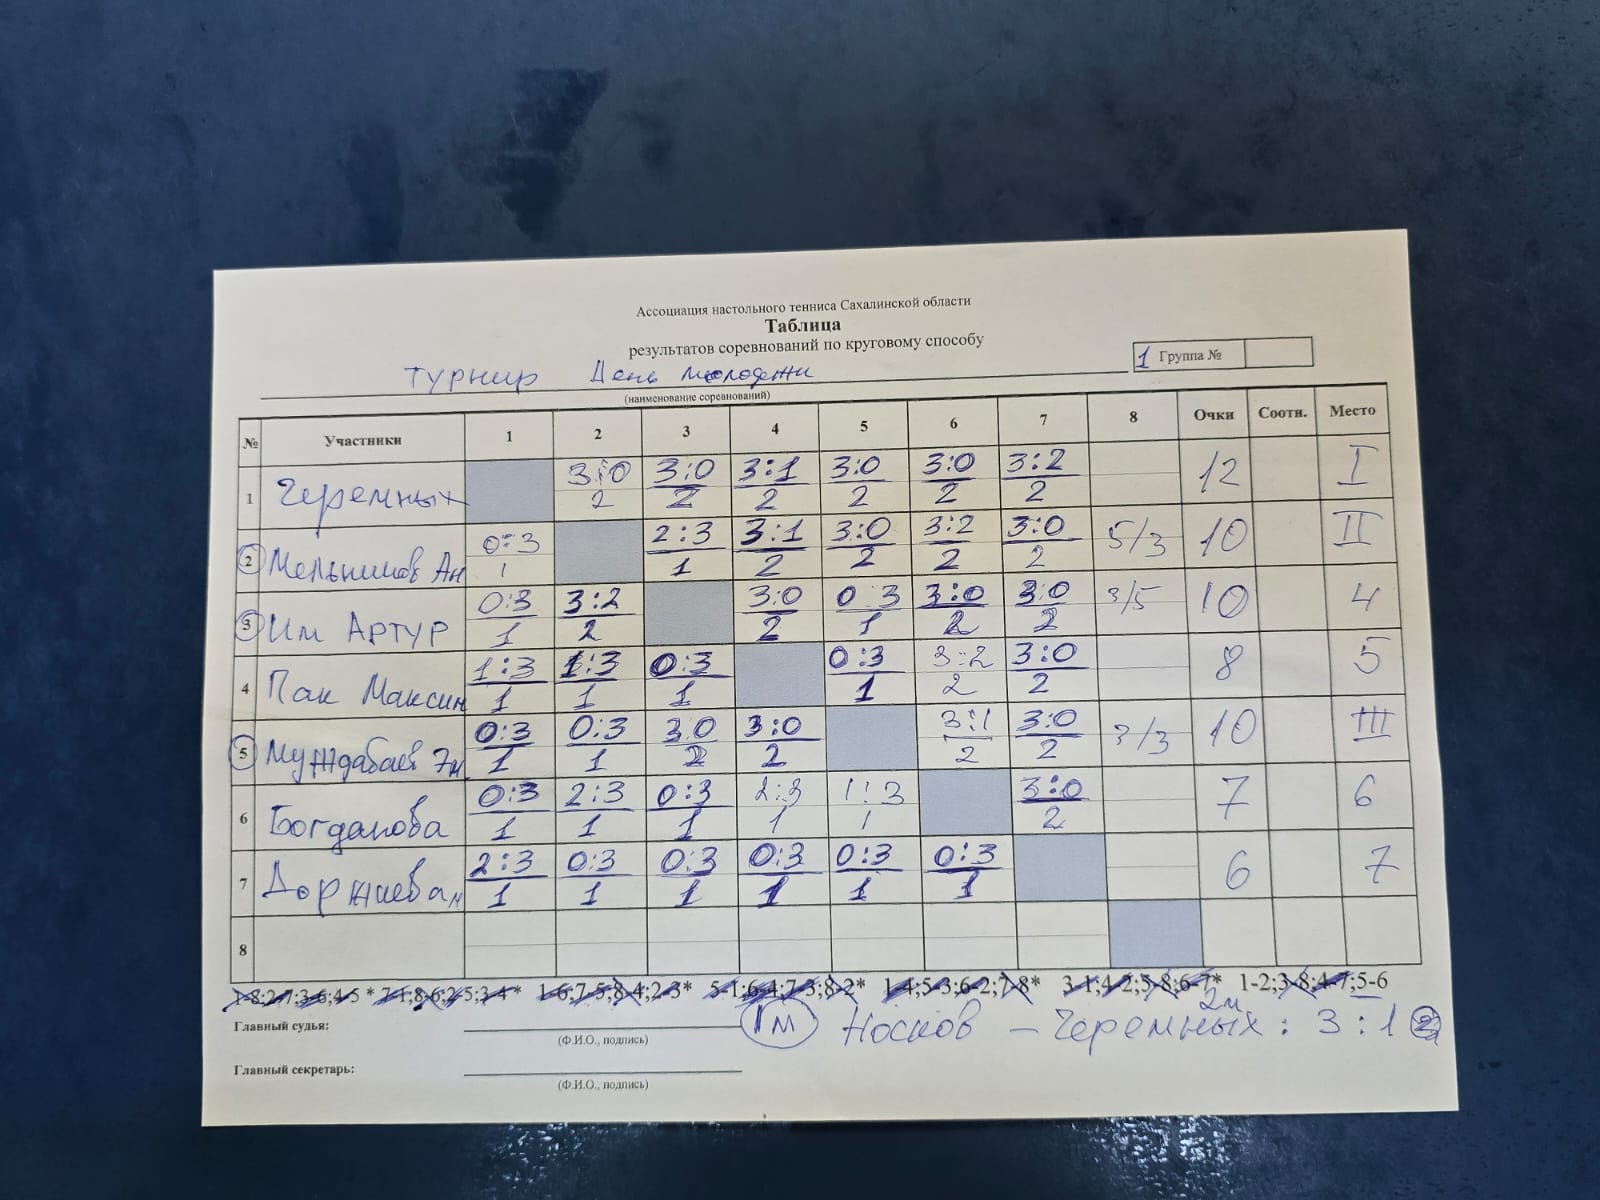 Ассоциация настольного тенниса Сахалинской области
Таблица
результатов соревнований по круговому способу
1 Группа №
турнир День молодежи
(наименование соревнований)
№ Участники 1 2 3 4 5 6 7 8 Очки Соотн. Место
1 Черемных 3:0 3:0 3:1 3:0 3:0 3:2 12 I
2 2 2 2 2 2
2 Мельников Ан 0:3 2:3 3:1 3:0 3:2 3:0 5/3 10 II
1 1 2 2 2 2
3 Им Артур 0:3 3:2 3:0 0 3 3:0 3:0 3/5 10 4
1 2 2 1 2 2
4 Пак Максим 1:3 1:3 0:3 0:3 3:2 3:0 8 5
1 1 1 1 2 2
5 Муждабаев Эм 0:3 0:3 3:0 3:0 3:1 3:0 3/3 10 III
1 1 2 2 2 2
6 Богданова 0:3 2:3 0:3 2:3 1:3 3:0 7 6
1 1 1 1 1 2
7 Доржиева 2:3 0:3 0:3 0:3 0:3 0:3 6 7
1 1 1 1 1 1
8
1-8;2-7;3-6;4-5 * 7-1;8-6;2-5;3-4* 1-6;7-5;8-4;2-3* 5-1;6-4;7-3;8-2* 1-4;5-3;6-2;7-8* 3-1;4-2;5-8;6-7* 1-2;3-8;4-7;5-6
Главный судья:
(Ф.И.О., подпись)
1м Носков – Черемных 2м : 3:1
Главный секретарь:
(Ф.И.О., подпись)